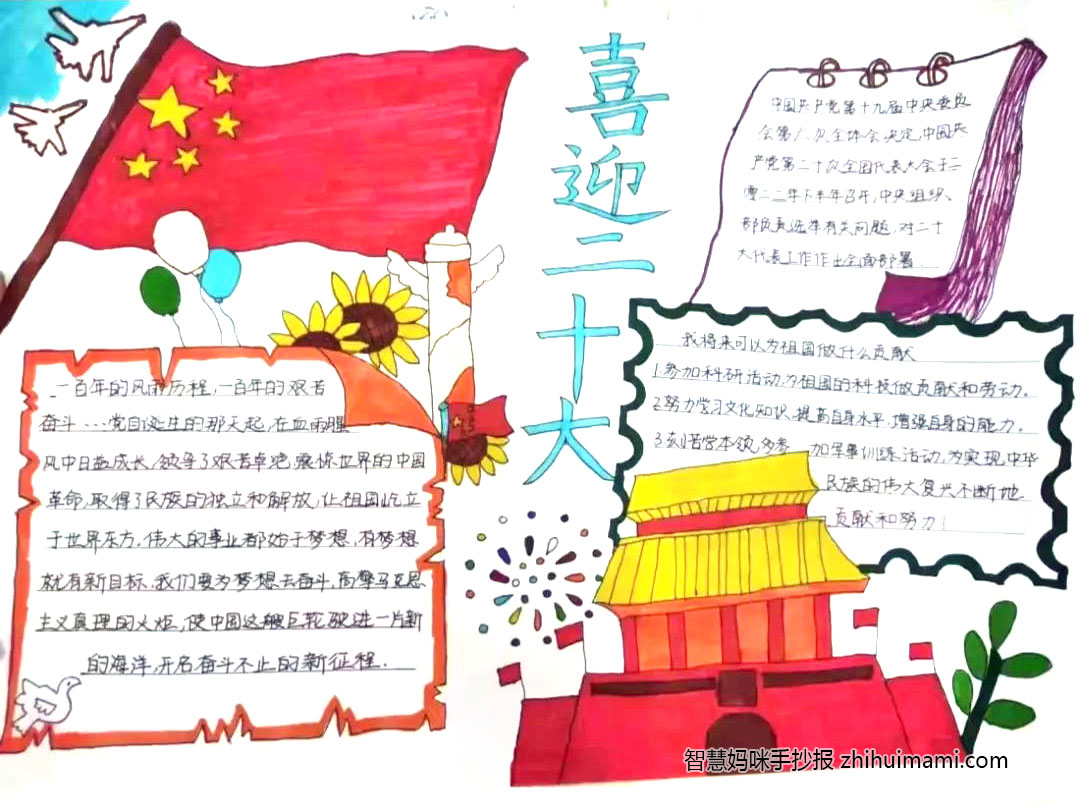 喜迎二十大
中国共产党第十九届中央委员
会第六次全体会决定,中国共
产党第二十次全国代表大会于二
零二二年下半年召开,中央组织
部负责选举有关问题,对二十
大代表工作作出全面部署.
一百年的风雨历程,一百年的艰苦
奋斗……党自诞生的那天起,在血雨腥
风中日益成长,领导了艰苦卓绝,震惊世界的中国
革命,取得了民族的独立和解放,让祖国屹立
于世界东方,伟大的事业都始于梦想,有梦想
就有新目标,我们要为梦想去奋斗,高擎马克思
主义真理的火炬,使中国这艘巨轮,驶进一片新
的海洋,开启奋斗不止的新征程.
我将来可以为祖国做什么贡献
1.参加科研活动,为祖国的科技做贡献和劳动。
2.努力学习文化知识,提高自身水平,增强自身的能力。
3.刻苦学本领,多参加军事训练活动,为实现中华
民族的伟大复兴不断地
贡献和努力!
智慧妈咪手抄报 zhihuimami.com